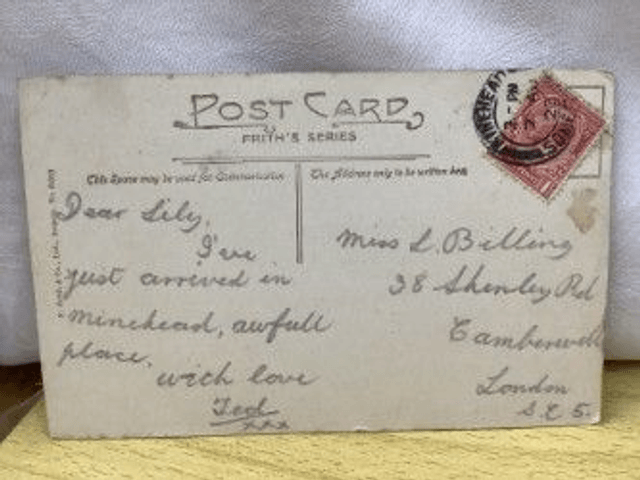 POST CARD
FRITH'S SERIES
MINEHEAD
This Space may be used for Communication
The Address only to be written here
Dear Lily,
I've
just arrived in
minehead, awfull
place.
with love
Ted
xxx
Miss L. Billing
38 Shenley Rd
Camberwell
London
S.E 5.